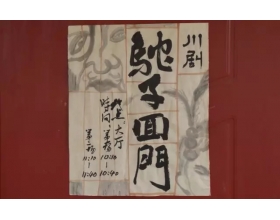 川剧
駝子回門
地点:大厅
时间:第一场 10:10—10:40
第二场
11:10—
11:40